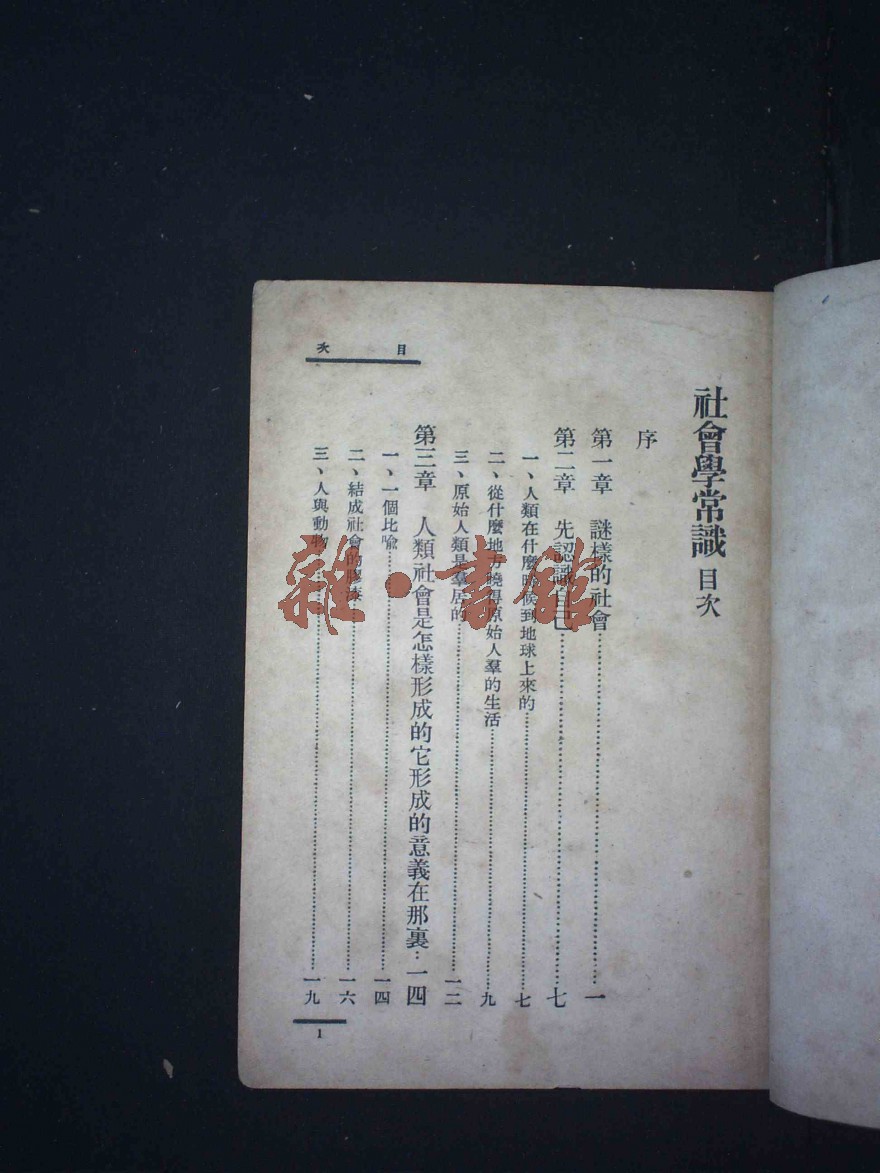 目次
社會學常識 目次
序
第一章 謎樣的社會……一
第二章 先認識自己……七
一、人類在什麼時候到地球上來的……七
二、從什麼地方曉得原始人羣的生活……九
三、原始人類是羣居的……一二
第三章 人類社會是怎樣形成的它形成的意義在那裏…一四
一、一個比喩……一四
二、結成社會的膠漆……一六
三、人與動物……一九
1
雜·書館